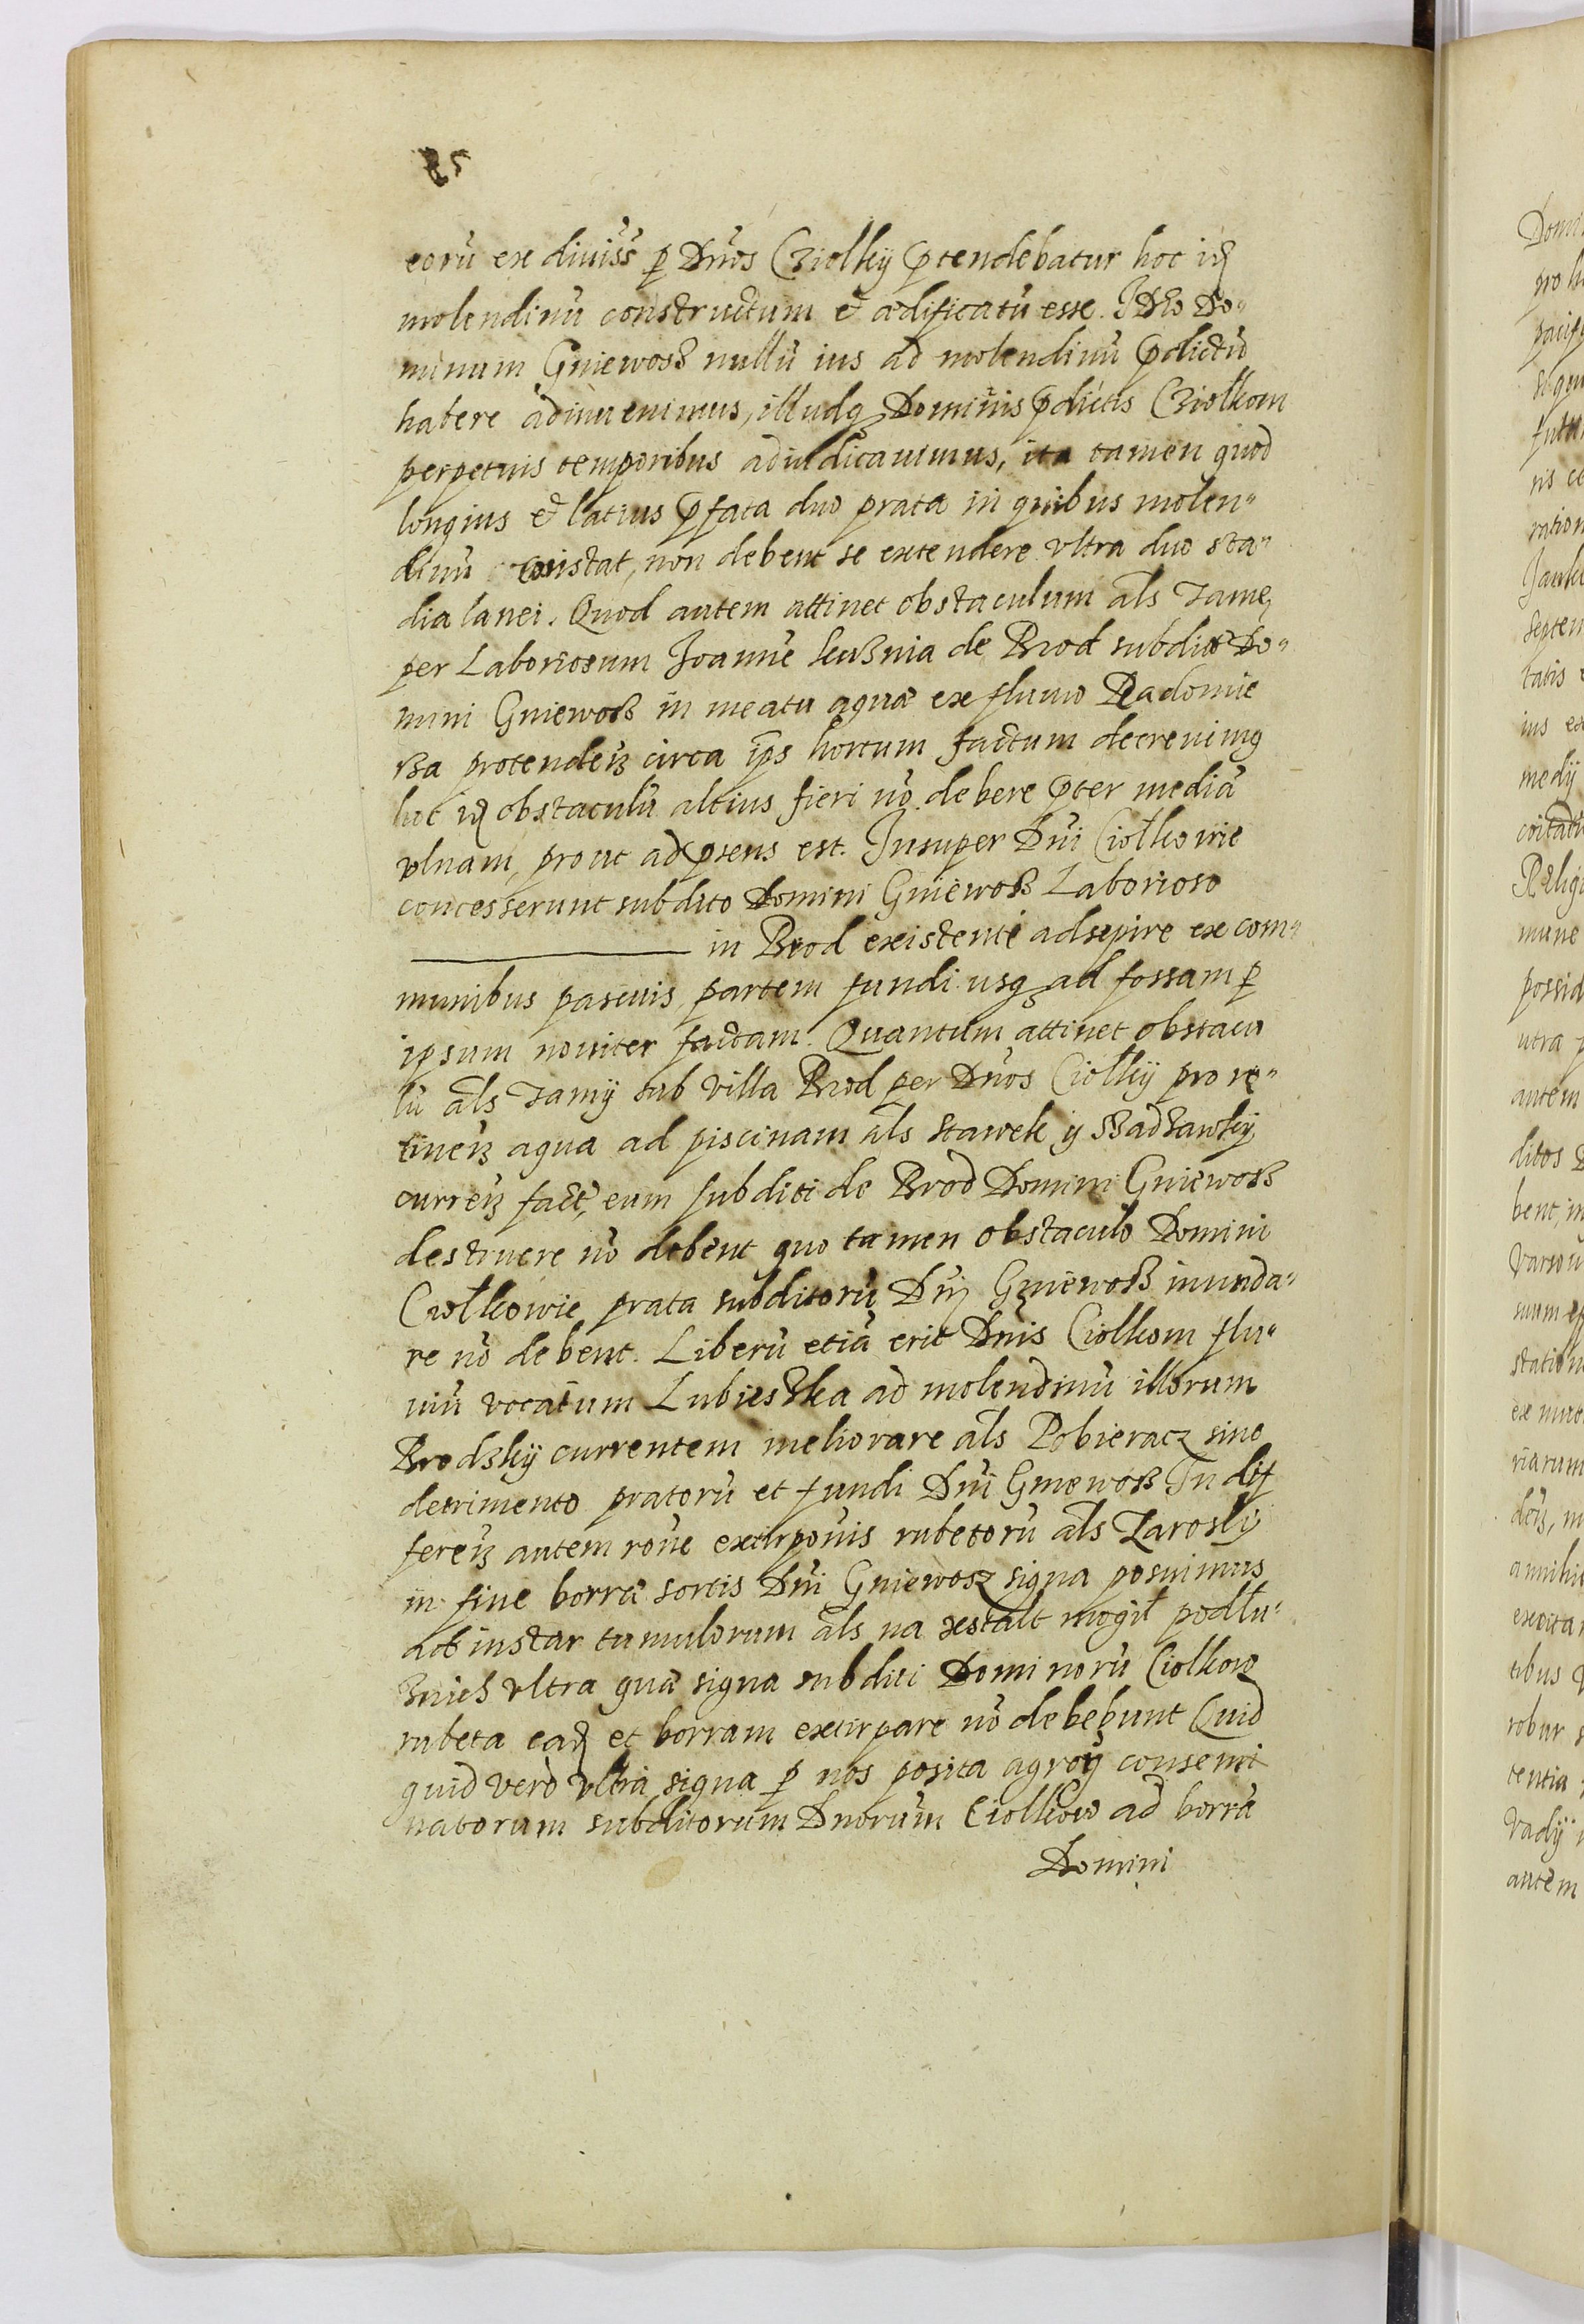 85
eorũ ex diuiss̃ p Dños Cziolky ptendebatur hoc idem
molendinũ constructum et ædificatũ esse. Ideo Do„
minum Gniewoss nullũ ius ad molendinũ pdictũ
habere adinuenimus, illudq Dominis pdictis Cziolkom
perpetuis temporibus adiudicauimus, ita tamen quod
longius et latius pfata duo prata in quibus molen„
dinũ consistat, non debent se extendere vltra duo sta„
dia lanei. Quod autem attinet obstaculum als Tamę
per Laboriosum Joannẽ kusznia de Brod subditũ Do„
mini Gniewoss in meatu aquæ ex fluuio Radomie
rza protendeñ circa ips hortum factum decreuimq
hoc idem obstaculũ altius fieri nõ debere pter mediã
vlnam, prout ad psens est. Insuper Dñi Ciolkowie
concesserunt subdito Domini Gniewoss Laborioso
in Brod existenti adsepire ex com„
munibus pascuis partem fundi usq ad fossam p
ipsum nouiter factam. Quantum attinet obstacu
lũ als Tamy sub villa Brod per Dños Ciolky pro re„
tineñ aqua ad piscinam als stawek y Sadzawky
curreñ fact, eum subditi de Brod Domini Gniewoss
destruere nõ debent quo tamen obstaculo Domini
Ciołkowie prata subditorũ Dñi Gniewoss inunda„
re nõ debent. Liberũ etiã erit Dnis Ciolkom flu„
uiũ vocatum Lubieszka ad molendinũ illorum
Brodzky currentem meliorare als Pobieracz sine
detrimento pratorũ et fundi Dñi Gniewoss In dif
fereñ autem rõne extirpõnis rubetorũ als Zarosly
in fine borrã sortis Dñi Gniewosz signa posuimus
ad instar tumulorum als na xstalt mogił podłu„
znich vltra quã signa subditi Dominorũ Ciolkow
rubeta eadem et borram extirpare nõ debebunt Quid
quid verò vltra signa p nos posita agroꝝ consemi
natorum subditorum Dnorum Ciolkow ad borrã
Domini